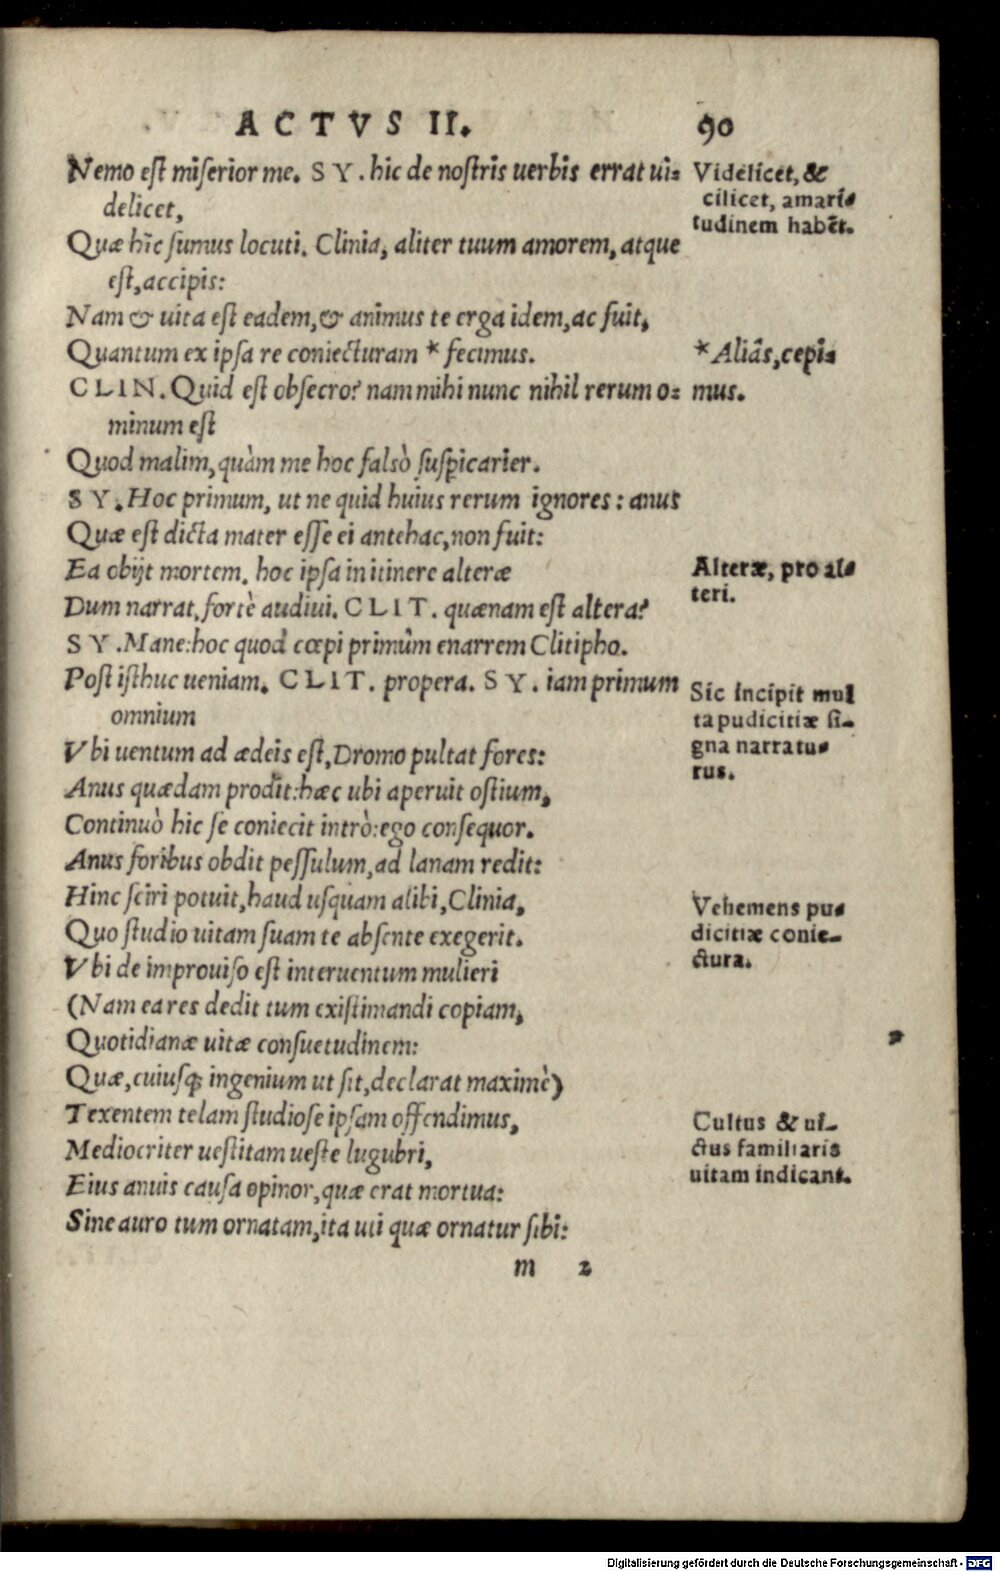 ACTVS II. 90
Nemo est miserior me. SY. hic de nostris uerbis errat ui-
delicet,
Quæ hîc sumus locuti. Clinia, aliter tuum amorem, atque
est, accipis:
Nam & uita est eadem, & animus te erga idem, ac fuit,
Quantum ex ipsa re coniecturam * fecimus.
CLIN. Quid est obsecro? nam mihi nunc nihil rerum o-
minum est
Quod malim, quàm me hoc falsò suspicarier.
SY. Hoc primum, ut ne quid huius rerum ignores: anus
Quæ est dicta mater esse ei antehac, non fuit:
Ea obijt mortem. hoc ipsa in itinere alteræ
Dum narrat, fortè audiui. CLIT. quænam est altera?
SY. Mane: hoc quod cœpi primùm enarrem Clitipho.
Post isthuc ueniam. CLIT. propera. SY. iam primum
omnium
Vbi uentum ad ædeis est, Dromo pultat fores:
Anus quædam prodît: hæc ubi aperuit ostium,
Continuò hic se coniecit intrò: ego consequor.
Anus foribus obdit pessulum, ad lanam redit:
Hinc sciri potuit, haud usquam alibi, Clinia,
Quo studio uitam suam te absente exegerit.
Vbi de improuiso est interuentum mulieri
(Nam ea res dedit tum existimandi copiam,
Quotidianæ uitæ consuetudinem:
Quæ, cuiusq; ingenium ut sit, declarat maximè)
Texentem telam studiose ipsam offendimus,
Mediocriter uestitam ueste lugubri,
Eius anuis causa opinor, quæ erat mortua:
Sine auro tum ornatam, ita uti quæ ornatur sibi:
m 2
Videlicet, &
cilicet, amari-
tudinem habẽt.
* Aliâs, cepi-
mus.
Alteræ, pro al-
teri.
Sic incipit mul
ta pudicitiæ si-
gna narratu-
rus.
Vehemens pu-
dicitiæ conie-
ctura.
Cultus & ui-
ctus familiaris
uitam indicant.
Digitalisierung gefördert durch die Deutsche Forschungsgemeinschaft - DFG